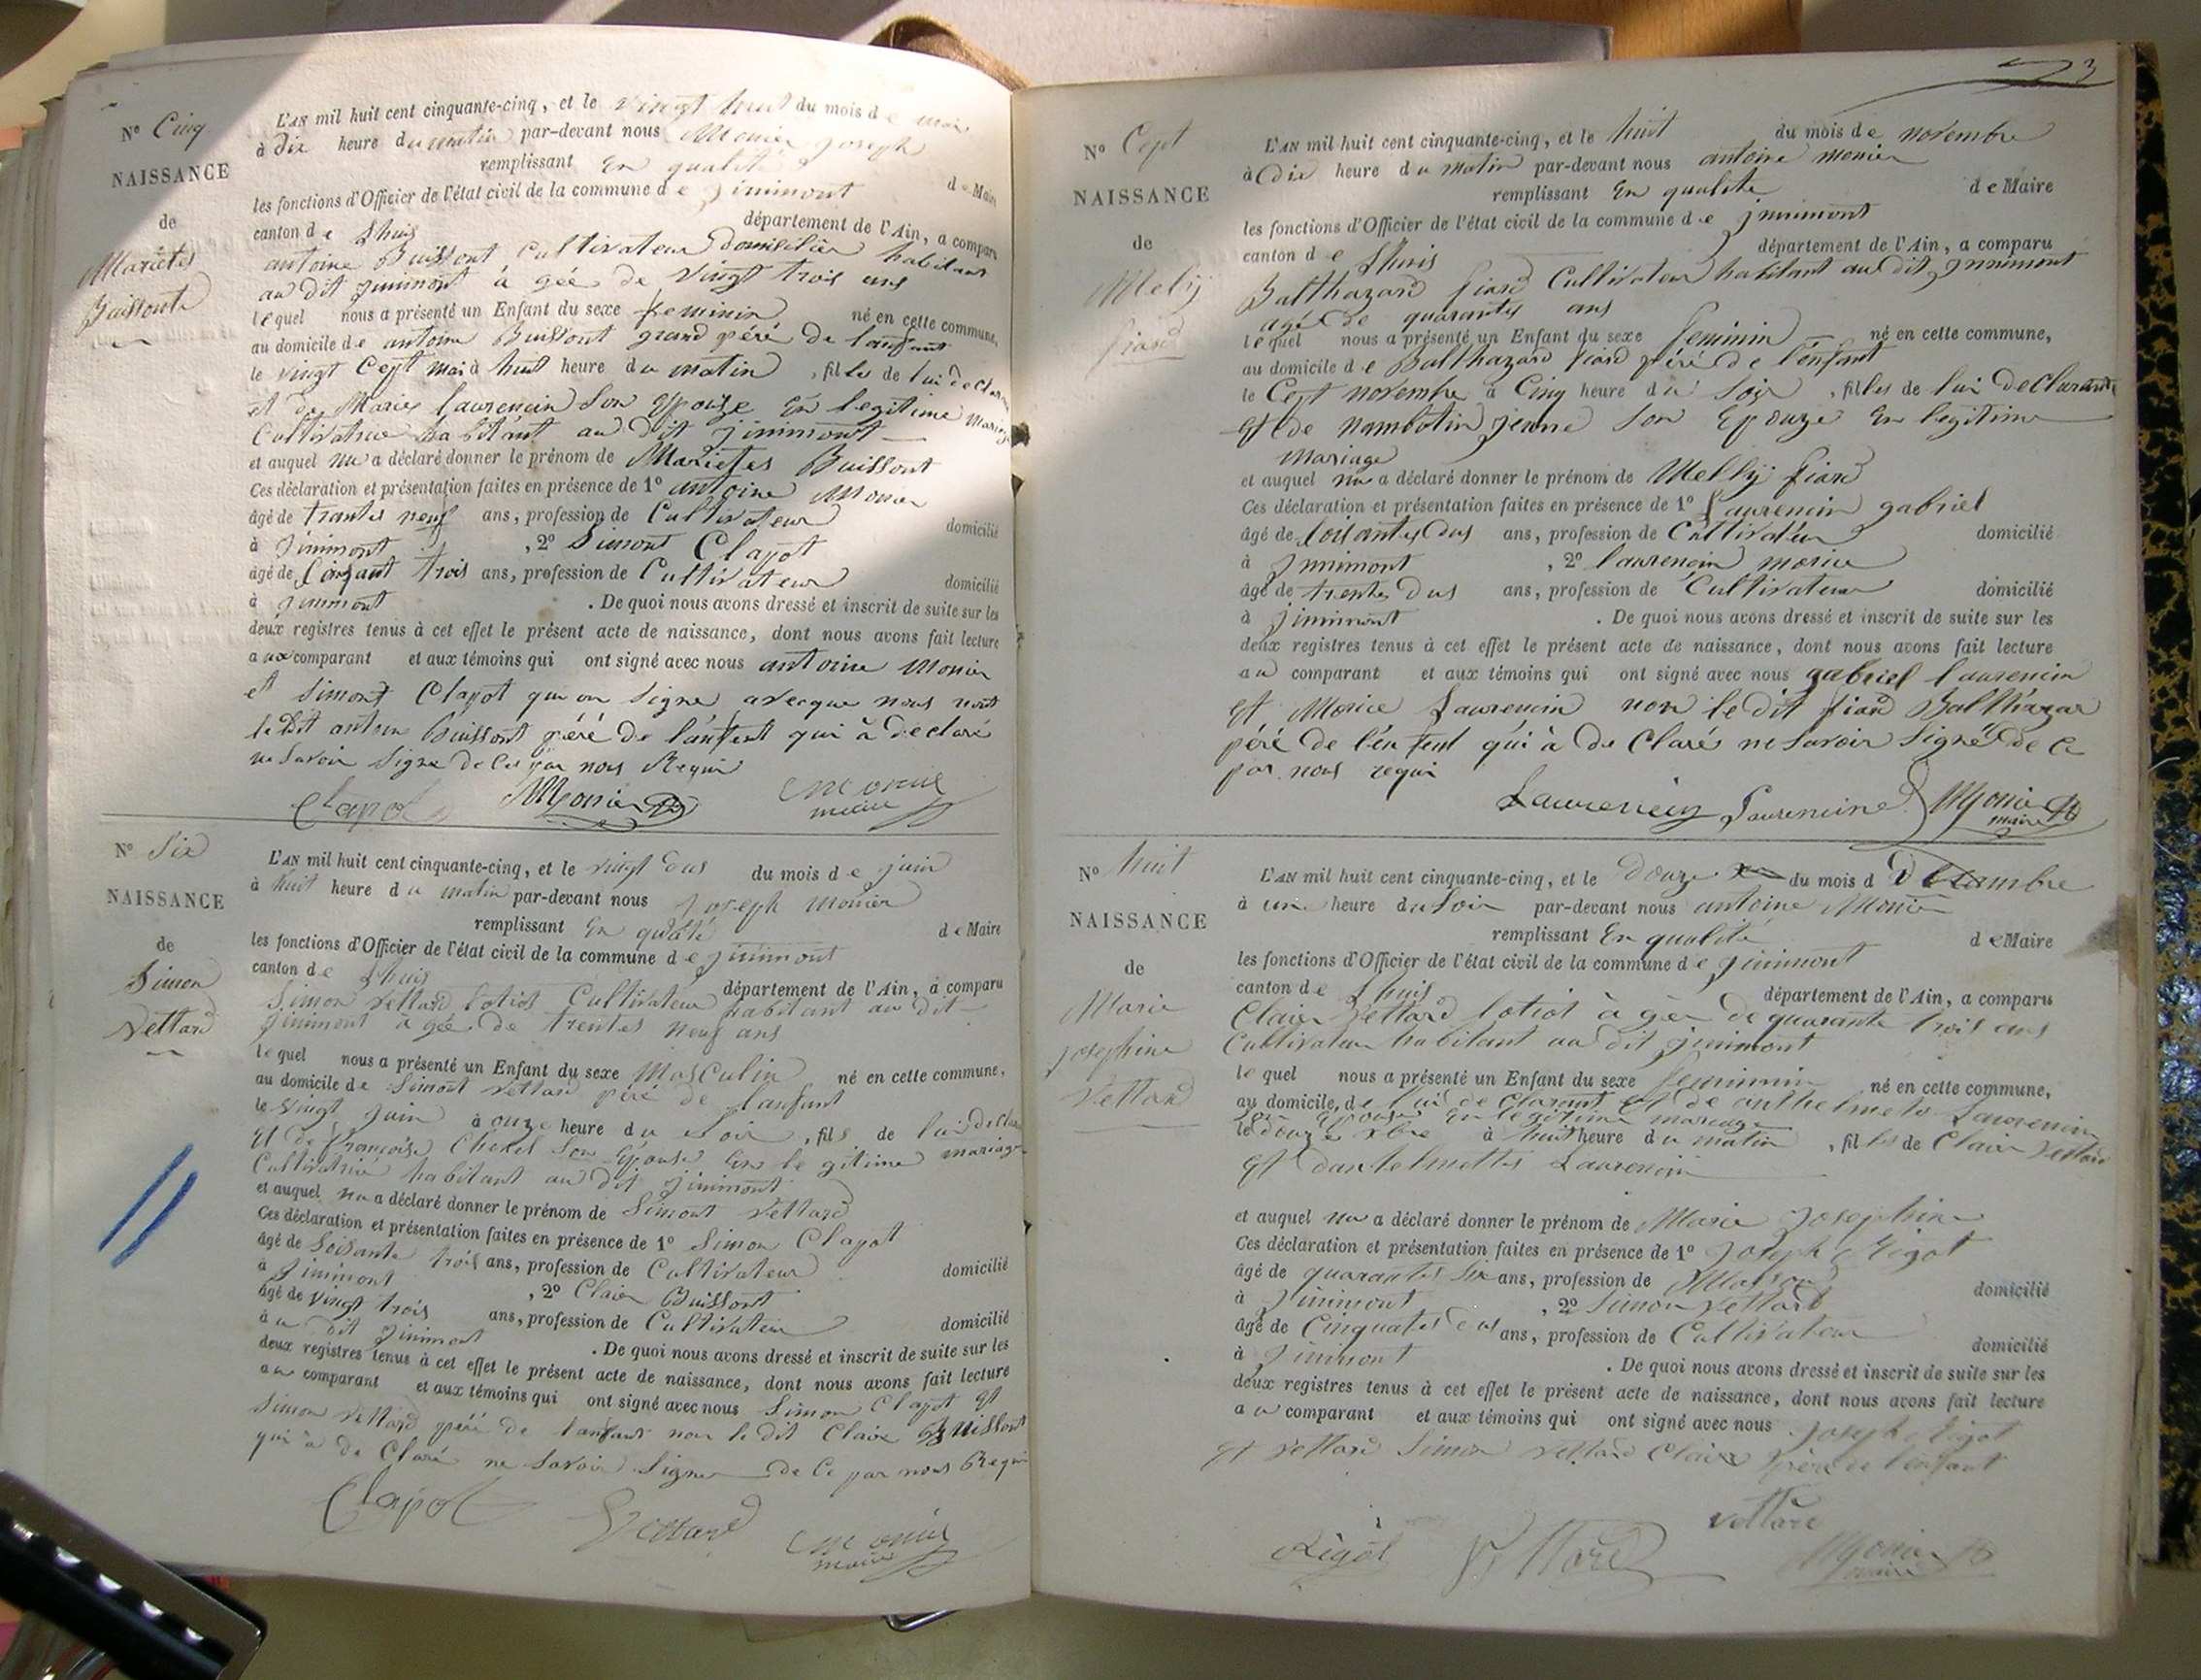 N° Cinq
NAISSANCE
de
Mariètes
Buissont
L'AN mil huit cent cinquante-cinq, et le vingt huit du mois de mai
à dix heure du matin par-devant nous Monier Joseph
remplissant En qualité de Maire
les fonctions d'Officier de l'état civil de la commune de jnimont
canton de Lhuis département de l'Ain, a comparu
antoine Buissont Cultivateur domicilié habitant
au dit jnimont à géé de vingt trois ans
lequel nous a présenté un Enfant du sexe feminin né en cette commune,
au domicile de antoine Buissont grand péré de lanfant
le vingt Cept mai à huit heure du matin, filles de lui declarant
et de Maries laurencin Son Epouze En legitime Mariage
Cultivatrice habitant au dit jnimont
et auquel il a déclaré donner le prénom de Marietes Buissont
Ces déclaration et présentation faites en présence de 1° antoine Monier
âgé de trantes neuf ans, profession de Cultivateur domicilié
à jnimont, 2° Simont Clapot
âgé de Cinqant trois ans, profession de Cultivateur domicilié
à jnimont. De quoi nous avons dressé et inscrit de suite sur les
deux registres tenus à cet effet le présent acte de naissance, dont nous avons fait lecture
aux comparant et aux témoins qui ont signé avec nous antoine Monier
et Simont Clapot qui on Signe avecque nous nont
le dit antoine Buissont péré de lanfent qui à déclaré
ne Savoir Signe de Ce par nous Requi
Clapot Monier Monier
maire
N° Six
NAISSANCE
de
Simon
Vettard
L'AN mil huit cent cinquante-cinq, et le vingt dus du mois de juin
à huit heure du matin par-devant nous Joseph Monier
remplissant En qualité de Maire
les fonctions d'Officier de l'état civil de la commune de jnimont
canton de Lhuis département de l'Ain, a comparu
Simon Vettard lotiot Cultivateur habitant au dit
jnimont a géé de trentes neuf ans
lequel nous a présenté un Enfant du sexe Masculin né en cette commune,
au domicile de Simont Vettard péré de lanfant
le vingt juin à onze heure du soir, fils de lui declarant
Et de françoise Chenel Son Epouse En le gitime mariage
Cultivatrice habitant au dit jnimont
et auquel il a déclaré donner le prénom de Simont Vettard
Ces déclaration et présentation faites en présence de 1° Simon Clapot
âgé de Soisante trois ans, profession de Cultivateur domicilié
à jnimont, 2° Claire Buissont
âgé de vingt trois ans, profession de Cultivateur domicilié
à u dit jnimont. De quoi nous avons dressé et inscrit de suite sur les
deux registres tenus à cet effet le présent acte de naissance, dont nous avons fait lecture
au comparant et aux témoins qui ont signé avec nous Simon Clapot Et
Simon Vettard péré de lanfant non le dit Claire Buissont
qui a de Claré ne Savoir Signer de Ce par nous Requi
Clapot Vettard Monier
maire
3
N° Cept
NAISSANCE
de
Melij
fiard
L'AN mil huit cent cinquante-cinq, et le huit du mois de novembre
à Dix heure du matin par-devant nous antoine monier
remplissant En qualité de Maire
les fonctions d'Officier de l'état civil de la commune de jnimont
canton de Lhuis département de l'Ain, a comparu
Balthazard fiard Cultivateur habitant au dit jnimont
agé de quarantes ans
lequel nous a présenté un Enfant du sexe feminin né en cette commune,
au domicile de Balthazard fiard péré de l'énfant
le Cept novembre à Cinq heure du Soir, filles de lui Declarante
Et de nambotin jenne Son Epouze En legitime
Mariage
et auquel il a déclaré donner le prénom de Mellij fiard
Ces déclaration et présentation faites en présence de 1° Laurencin gabriel
âgé de Soisantes dus ans, profession de Cultivateur domicilié
à jnimont, 2° laurencin morice
âgé de trentes dus ans, profession de Cultivateur domicilié
à jnimont. De quoi nous avons dressé et inscrit de suite sur les
deux registres tenus à cet effet le présent acte de naissance, dont nous avons fait lecture
au comparant et aux témoins qui ont signé avec nous gabriel laurencin
Et Morice Laurencin non le dit fiard Balthazar
péré de l'én fent qui à de Claré ne Savoir Signé de Ce
par nous requi
Laurencin Laurencine Monier
maire
N° huit
NAISSANCE
de
Marie
josephine
Vettard
L'AN mil huit cent cinquante-cinq, et le Douze du mois d Décambre
à une heure du Soir par-devant nous antoine Monier
remplissant En qualité de Maire
les fonctions d'Officier de l'état civil de la commune de jnimont
canton de Lhuis département de l'Ain, a comparu
Claire Vettard lotiot à gée de quarante trois ans
Cultivateur habitant au dit jnimont
lequel nous a présenté un Enfant du sexe feminin né en cette commune,
au domicile de lui de clarant Et de anthelmete Laurencin
Son Epouse En legitime mariage
le douze xbre à huit heure du matin, filles de Claire Vettard
Et dantelmettes Laurencin
et auquel il a déclaré donner le prénom de Marie Josephine
Ces déclaration et présentation faites en présence de 1° Joseph Rigot
âgé de quarantes Six ans, profession de Masson domicilié
à jnimont, 2° Simon Vettard
âgé de Cinquates dus ans, profession de Cultivateur domicilié
à jnimont. De quoi nous avons dressé et inscrit de suite sur les
deux registres tenus à cet effet le présent acte de naissance, dont nous avons fait lecture
au comparant et aux témoins qui ont signé avec nous Joseph Rigot
Et Vettard Simon Vettard Claire péré de l'enfant
vettard
Rigot Vettard Monier
maire